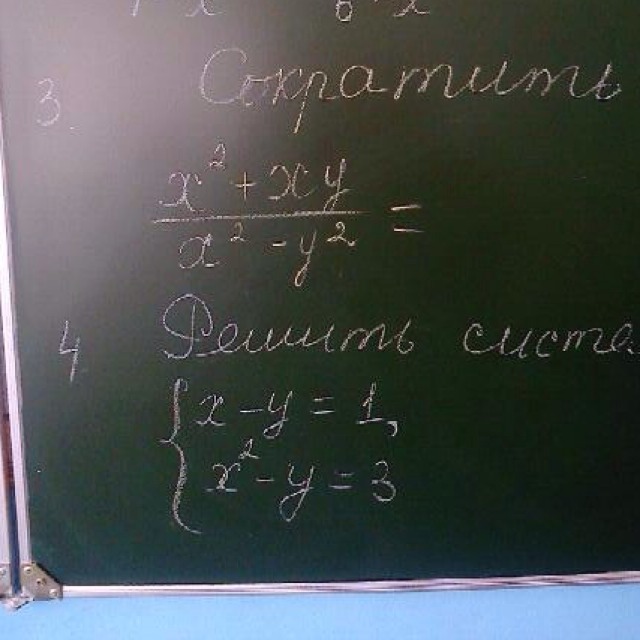 3. Сократить
x² + xy
x² - y² =
4 Решить
{ x - y = 1,
x² - y = 3